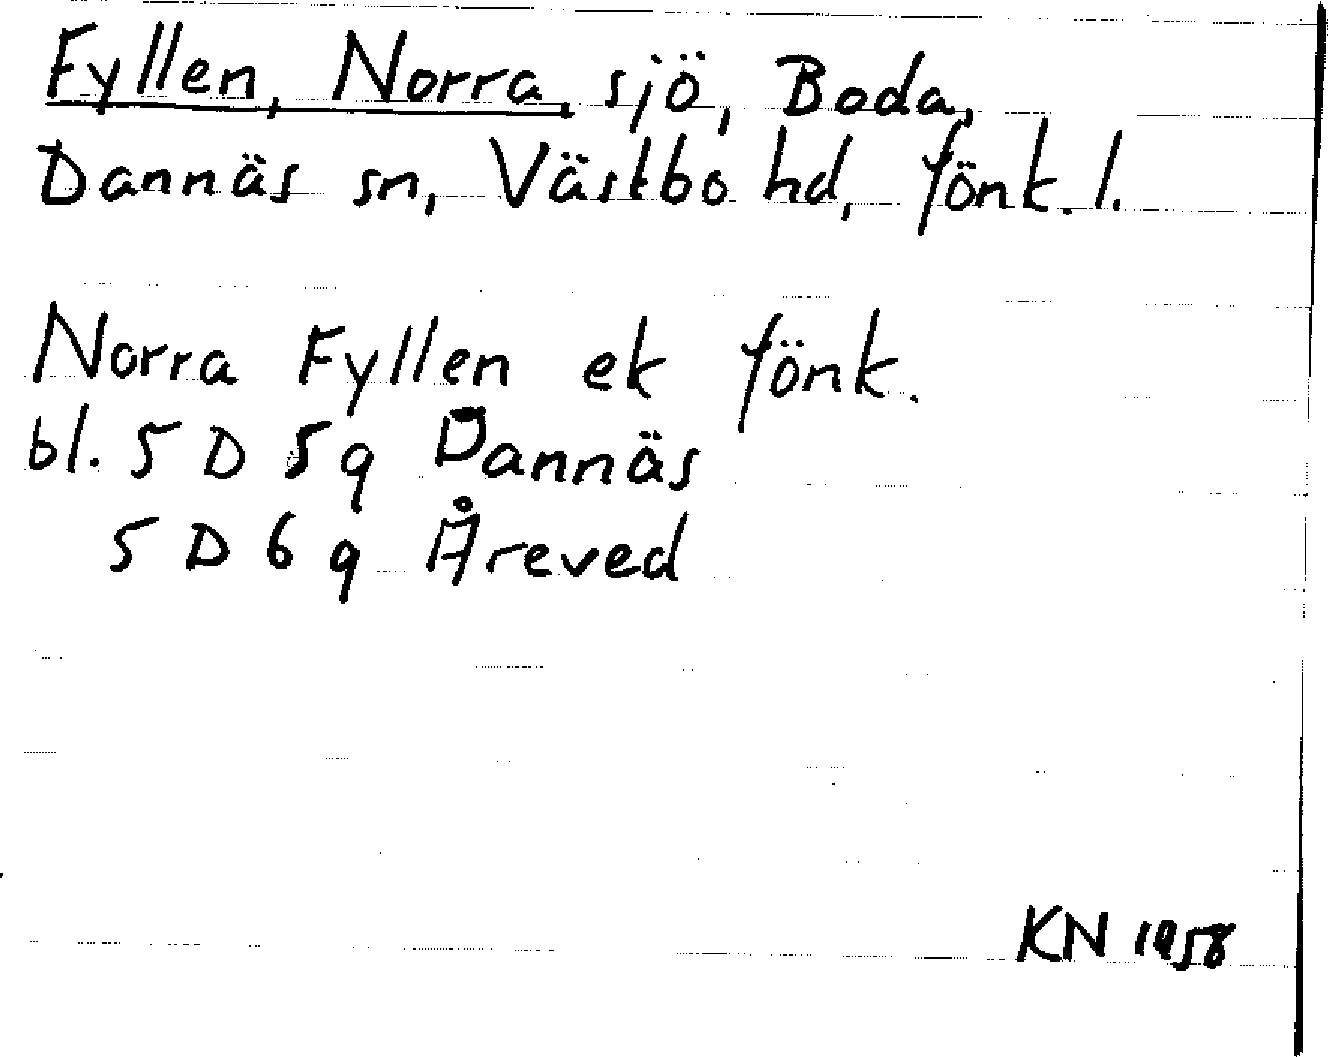 Fyllen, Norra, sjö, Boda,
Dannäs sn, Västbo hd, Jönk. l.
Norra Fyllen ek Jönk.
bl. 5 D 5 q Dannäs
5 D 6 q Åreved
KN 1958